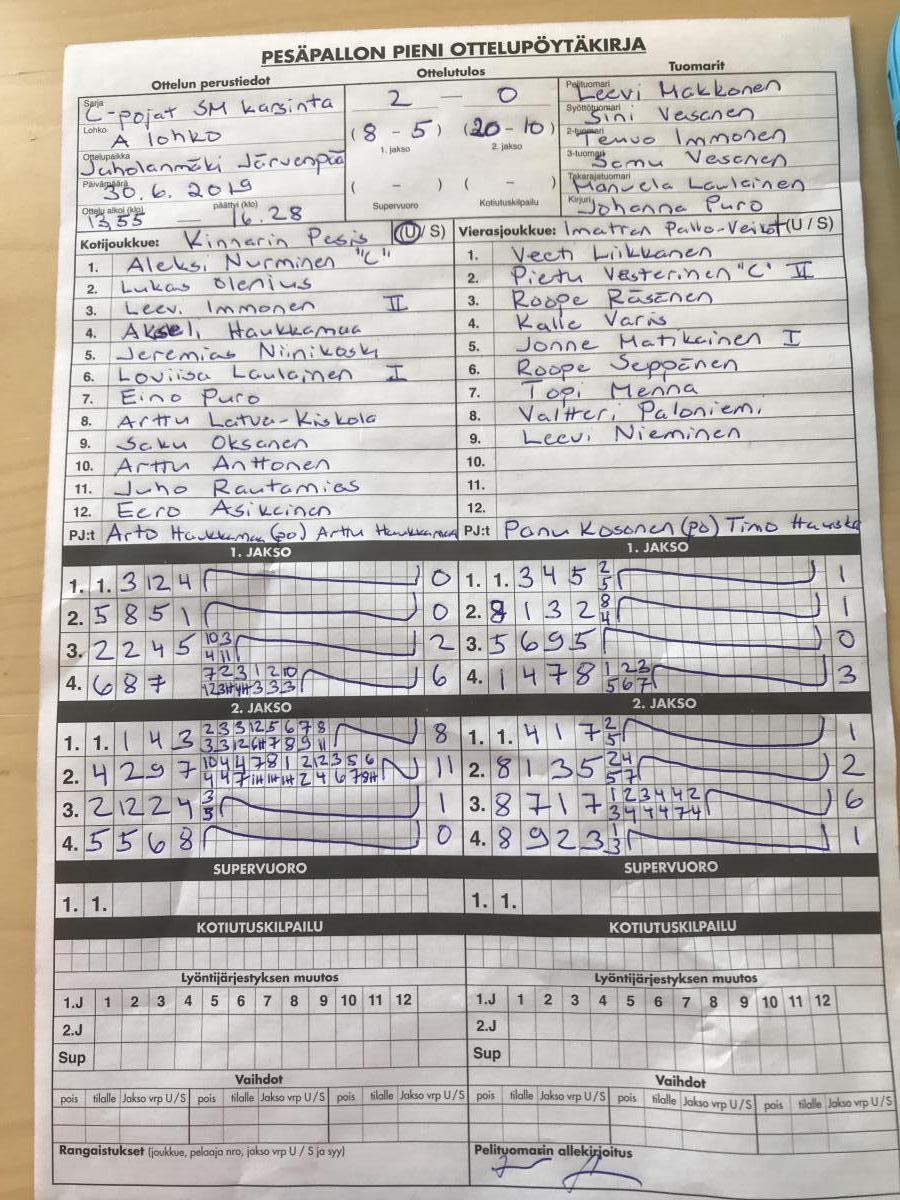 PESÄPALLON PIENI OTTELUPÖYTÄKIRJA
Ottelun perustiedot
Ottelutulos
Tuomarit
Sarja C-pojat SM karsinta
Lohko A lohko
Ottelupaikka Juholanmäki Järvenpää
Päivämäärä 30.6.2019
Ottelu alkoi (klo) 13.55 — päättyi (klo) 16.28
2 — 0
(8 - 5) (20 - 10)
1. jakso 2. jakso
( - ) ( - )
Supervuoro Kotiutuskilpailu
Pelituomari Leevi Makkonen
Syöttötuomari Sini Vesanen
2-tuomari Tenvo Immonen
3-tuomari Samu Vesanen
Takarajatuomari Manuela Laulainen
Kirjuri Johanna Puro
Kotijoukkue: Kinnarin Pesis (U / S)
1. Aleksi Nurminen "C"
2. Lukas Olenius
3. Leevi Immonen II
4. Akseli Haukkamaa
5. Jeremias Niinikoski
6. Loviisa Laulainen I
7. Eino Puro
8. Arttu Latva-Kiskola
9. Saku Oksanen
10. Arttu Anttonen
11. Juho Rautamies
12. Eero Asikainen
PJ:t Arto Haukkamaa (po) Arttu Haukkamaa
Vierasjoukkue: Imatran Pallo-Veikot (U / S)
1. Veeti Liikkanen
2. Pietu Vesterinen "C" II
3. Roope Räsänen
4. Kalle Varis
5. Jonne Matikainen I
6. Roope Seppänen
7. Topi Menna
8. Valtteri Paloniemi
9. Leevi Nieminen
10.
11.
12.
PJ:t Panu Kosonen (po) Timo
1. JAKSO
1. 1. 3 12 4 0
2. 5 8 5 1 0
3. 2 2 4 5 10 3 2
4 11
4. 6 8 7 7 2 3 1 2 10 6
1. JAKSO
1. 1. 3 4 5 2 1
5
2. 8 1 3 2 8 1
4
3. 5 6 9 5 0
4. 1 4 7 8 1 2 3 3
5 6 7
2. JAKSO
1. 1. 1 4 3 2 3 3 12 5 6 7 8 8
2. 4 2 9 7 10 4 4 7 8 1 2 12 3 5 6 11
3. 2 12 2 4 3 1
5
4. 5 5 6 8 0
2. JAKSO
1. 1. 4 1 7 2 1
5
2. 8 1 3 5 2 4 2
5 7
3. 8 7 1 7 1 2 3 4 4 2 6
3 4 4 4 7 4
4. 8 9 2 3 1 1
3
SUPERVUORO
1. 1.
SUPERVUORO
1. 1.
KOTIUTUSKILPAILU
KOTIUTUSKILPAILU
Lyöntijärjestyksen muutos
1.J 1 2 3 4 5 6 7 8 9 10 11 12
2.J
Sup
Lyöntijärjestyksen muutos
1.J 1 2 3 4 5 6 7 8 9 10 11 12
2.J
Sup
Vaihdot
pois tilalle Jakso vrp U/S pois tilalle Jakso vrp U/S pois tilalle Jakso vrp U/S
Vaihdot
pois tilalle Jakso vrp U/S pois tilalle Jakso vrp U/S pois tilalle Jakso vrp U/S
Rangaistukset (joukkue, pelaaja nro, jakso vrp U / S ja syy)
Pelituomarin allekirjoitus